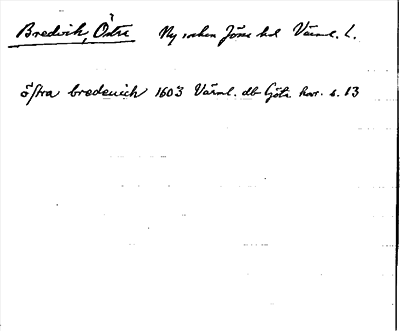 Bredvik, Östra Ny socken Jösse hd Värml. L.
östra bredeuich 1603 Värml. db Göta hovr. s. 13